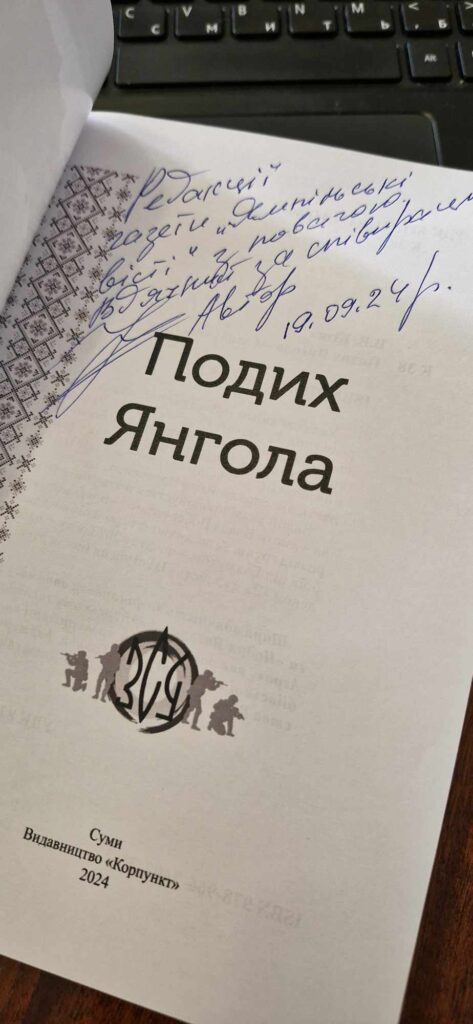 C
V
B
N
M
<
С
М
И
Т
Ь
Б
AR
Редакції
газети „Ямпільські
вісті" з повагою.
Вдячний за співпрацю
Автор
19.09.24 р.
Подих
Янгола
ЗСУ
Суми
Видавництво «Корпункт»
2024